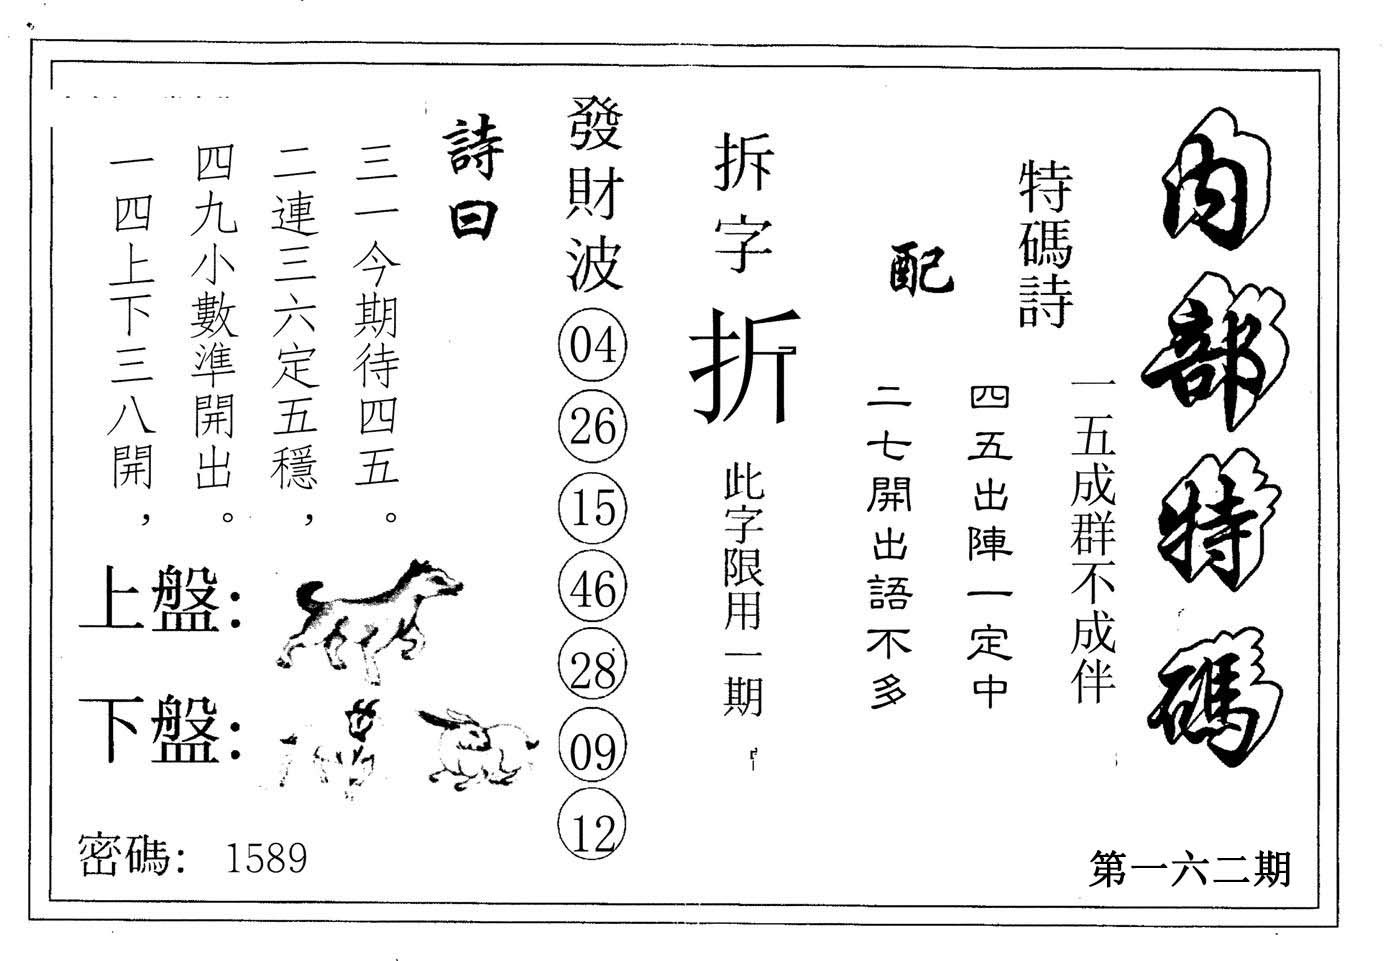 内部特碼
第一六二期
特碼詩
一五成群不成伴
四五出陣一定中
配
二七開出語不多
拆字
折
此字限用一期
發財波
04
26
15
46
28
09
12
詩曰
三一今期待四五。
二連三六定五穩，
四九小數準開出。
一四上下三八開，
上盤：
下盤：
密碼： 1589